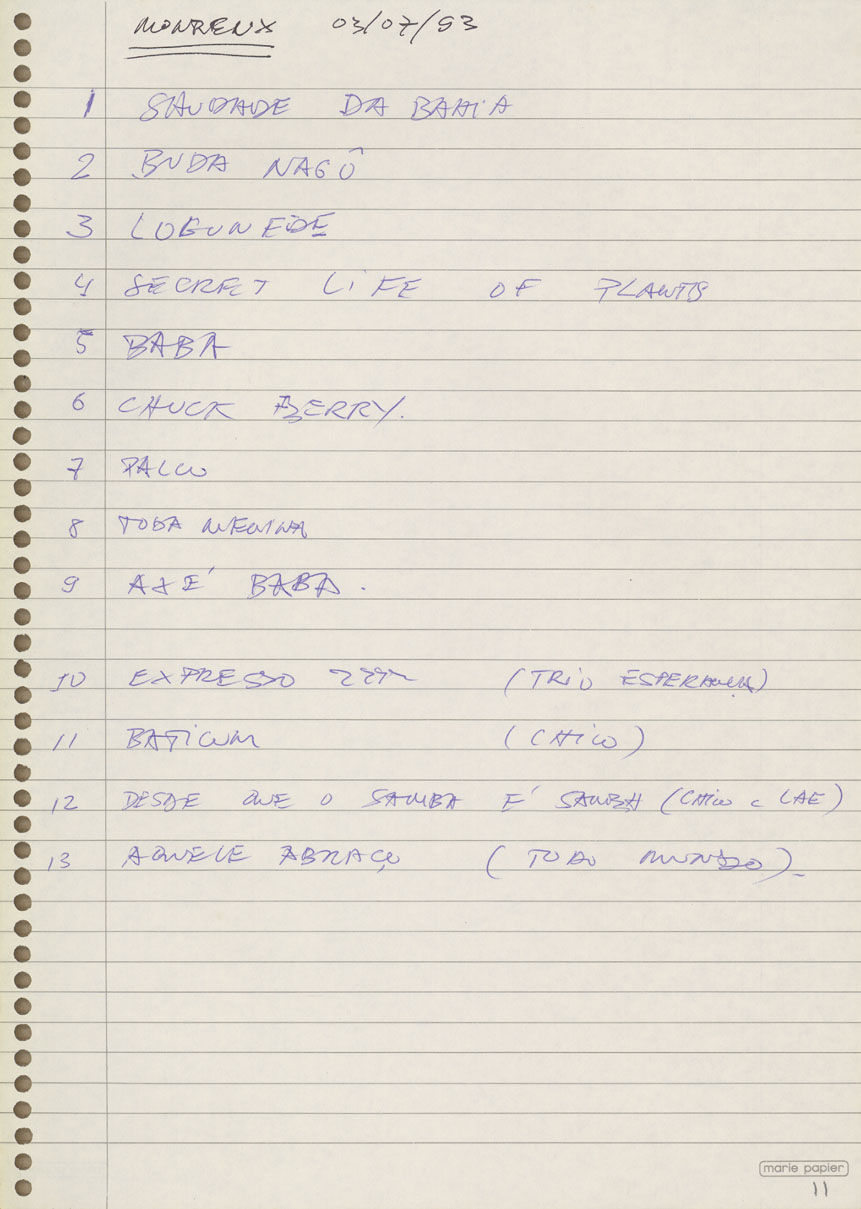 MONREUX 03/07/93
1 SAUDADE DA BAHIA
2 BUDA NAGÔ
3 LOGUNEDE
4 SECRET LIFE OF PLANTS
5 BABA
6 CHUCK BERRY.
7 PALCO
8 TODA MENINA
9 AXÉ BABA.
10 EXPRESSO 2222 (TRIO ESPERANÇA)
11 BATICUM (CHICO)
12 DESDE QUE O SAMBA É SAMBA (CHICO e CAE)
13 AQUELE ABRAÇO (TODO MUNDO)
marie papier
11